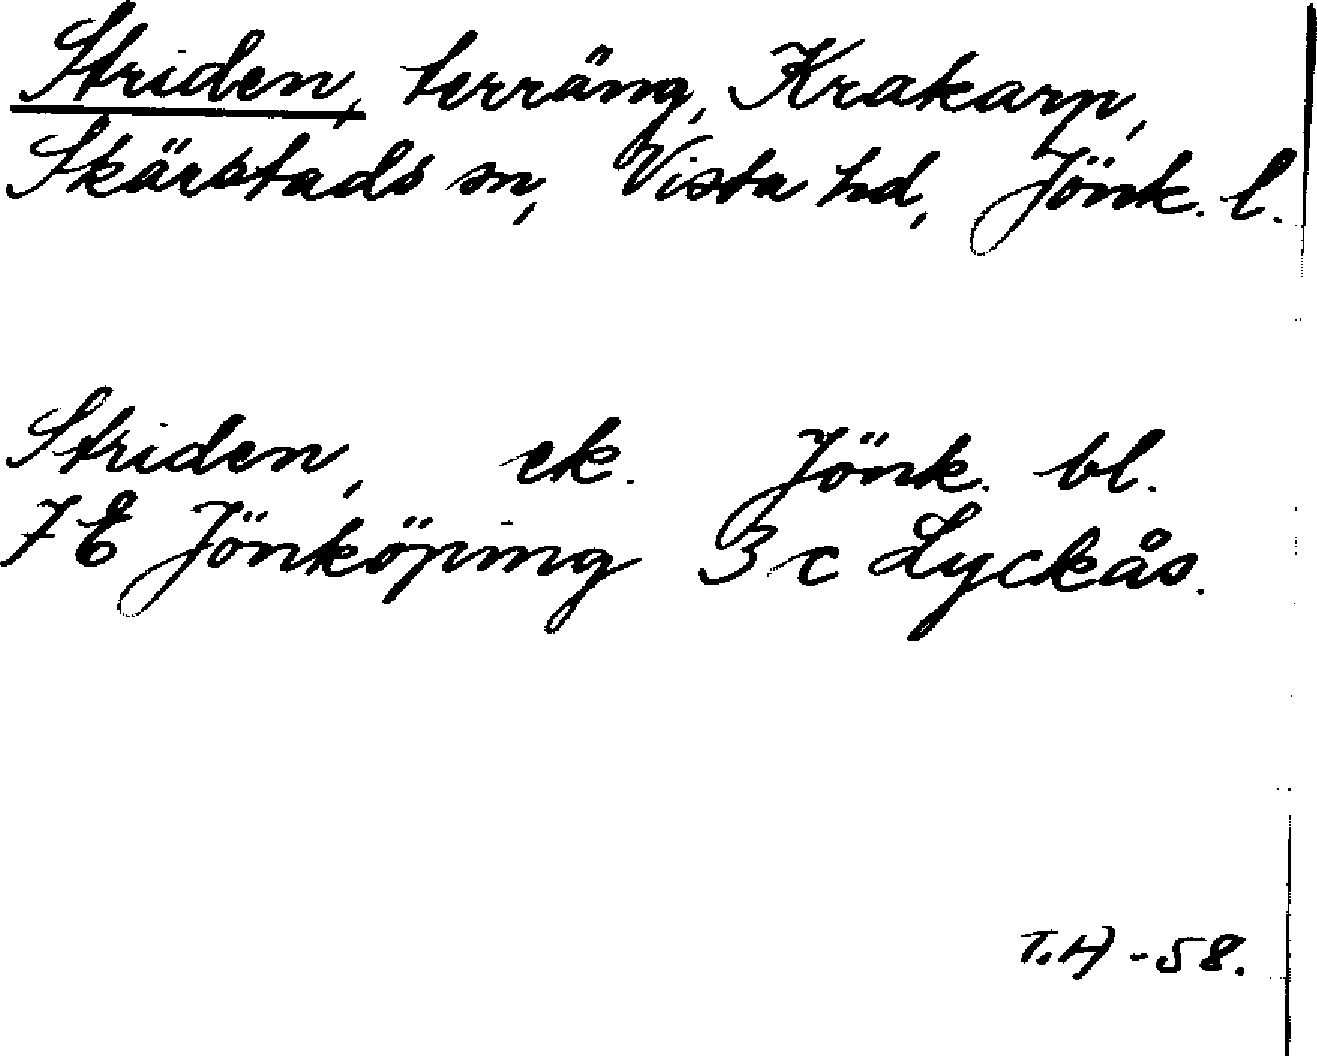 Striden, terräng, Krakarp,
Skärstads sn, Vista hd, Jönk. l.
Striden, ek. Jönk. bl.
7 E Jönköping 3 c Lyckås.
T.H -58.